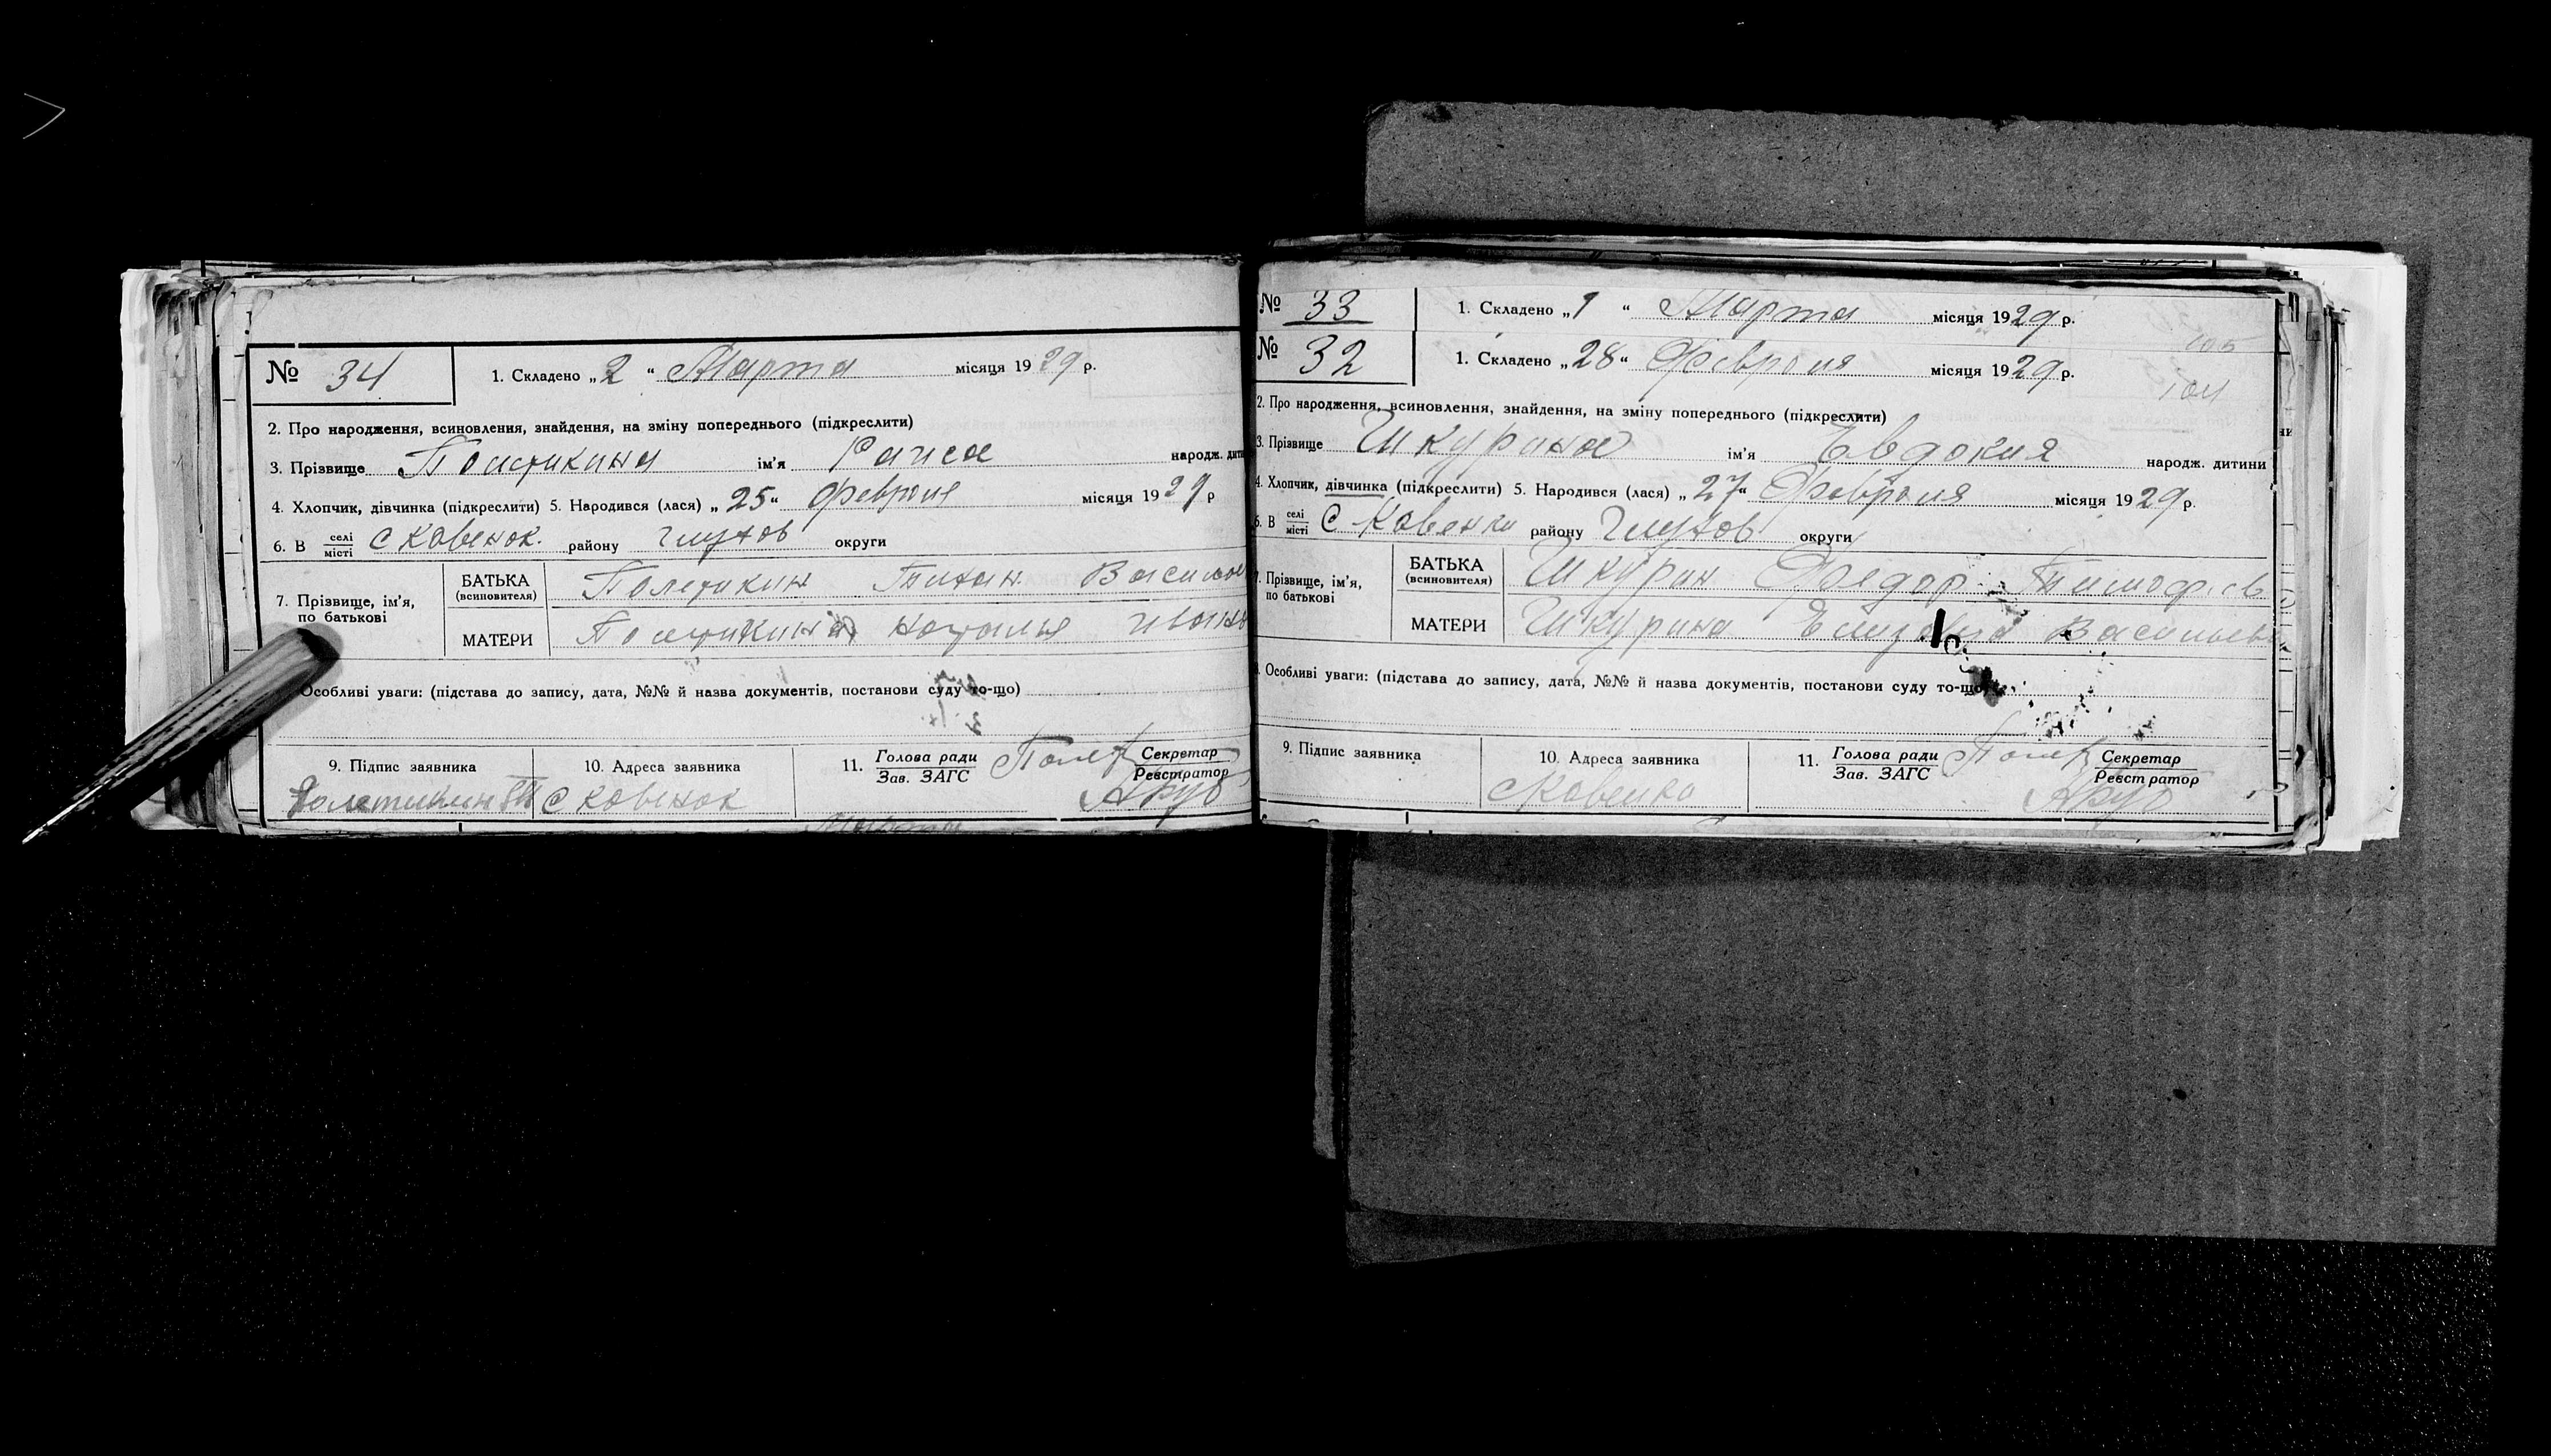 № 34
1. Складено „2“ Марта місяця 1929 р.
2. Про народження, всиновлення, знайдення, на зміну попереднього (підкреслити)
3. Прізвище Полетикина ім'я Раиса народж. дити
4. Хлопчик, дівчинка (підкреслити) 5. Народився (лася) „25“ Февроля місяця 1929 р
6. В селі місті С Ковенок. району Глухов округи
7. Прізвище, ім'я, по батькові
БАТЬКА (всиновителя) Полетикин Тихан Василье
МАТЕРИ Полетикина Наталья Ивано
Особливі уваги: (підстава до запису, дата, №№ й назва документів, постанови суду то-що)
9. Підпис заявника Полетикин
10. Адреса заявника С Ковенок
11. Голова ради Зав. ЗАГС Полет Секретар Реєстратор
№ 33
1. Складено „1“ Марта місяця 1929 р.
105
№ 32
1. Складено „28“ Февроля місяця 1929 р.
104
2. Про народження, всиновлення, знайдення, на зміну попереднього (підкреслити)
3. Прізвище Шкурина ім'я Евдокия народж. дитини
4. Хлопчик, дівчинка (підкреслити) 5. Народився (лася) „27“ Февроля місяця 1929 р.
6. В селі місті С Ковенки району Глухов округи
7. Прізвище, ім'я, по батькові
БАТЬКА (всиновителя) Шкурин Федор Тимофеев
МАТЕРИ Шкурина Васильевн
8. Особливі уваги: (підстава до запису, дата, №№ й назва документів, постанови суду то-що)
9. Підпис заявника
10. Адреса заявника С Ковенко
11. Голова ради Зав. ЗАГС Полет Секретар Реєстратор